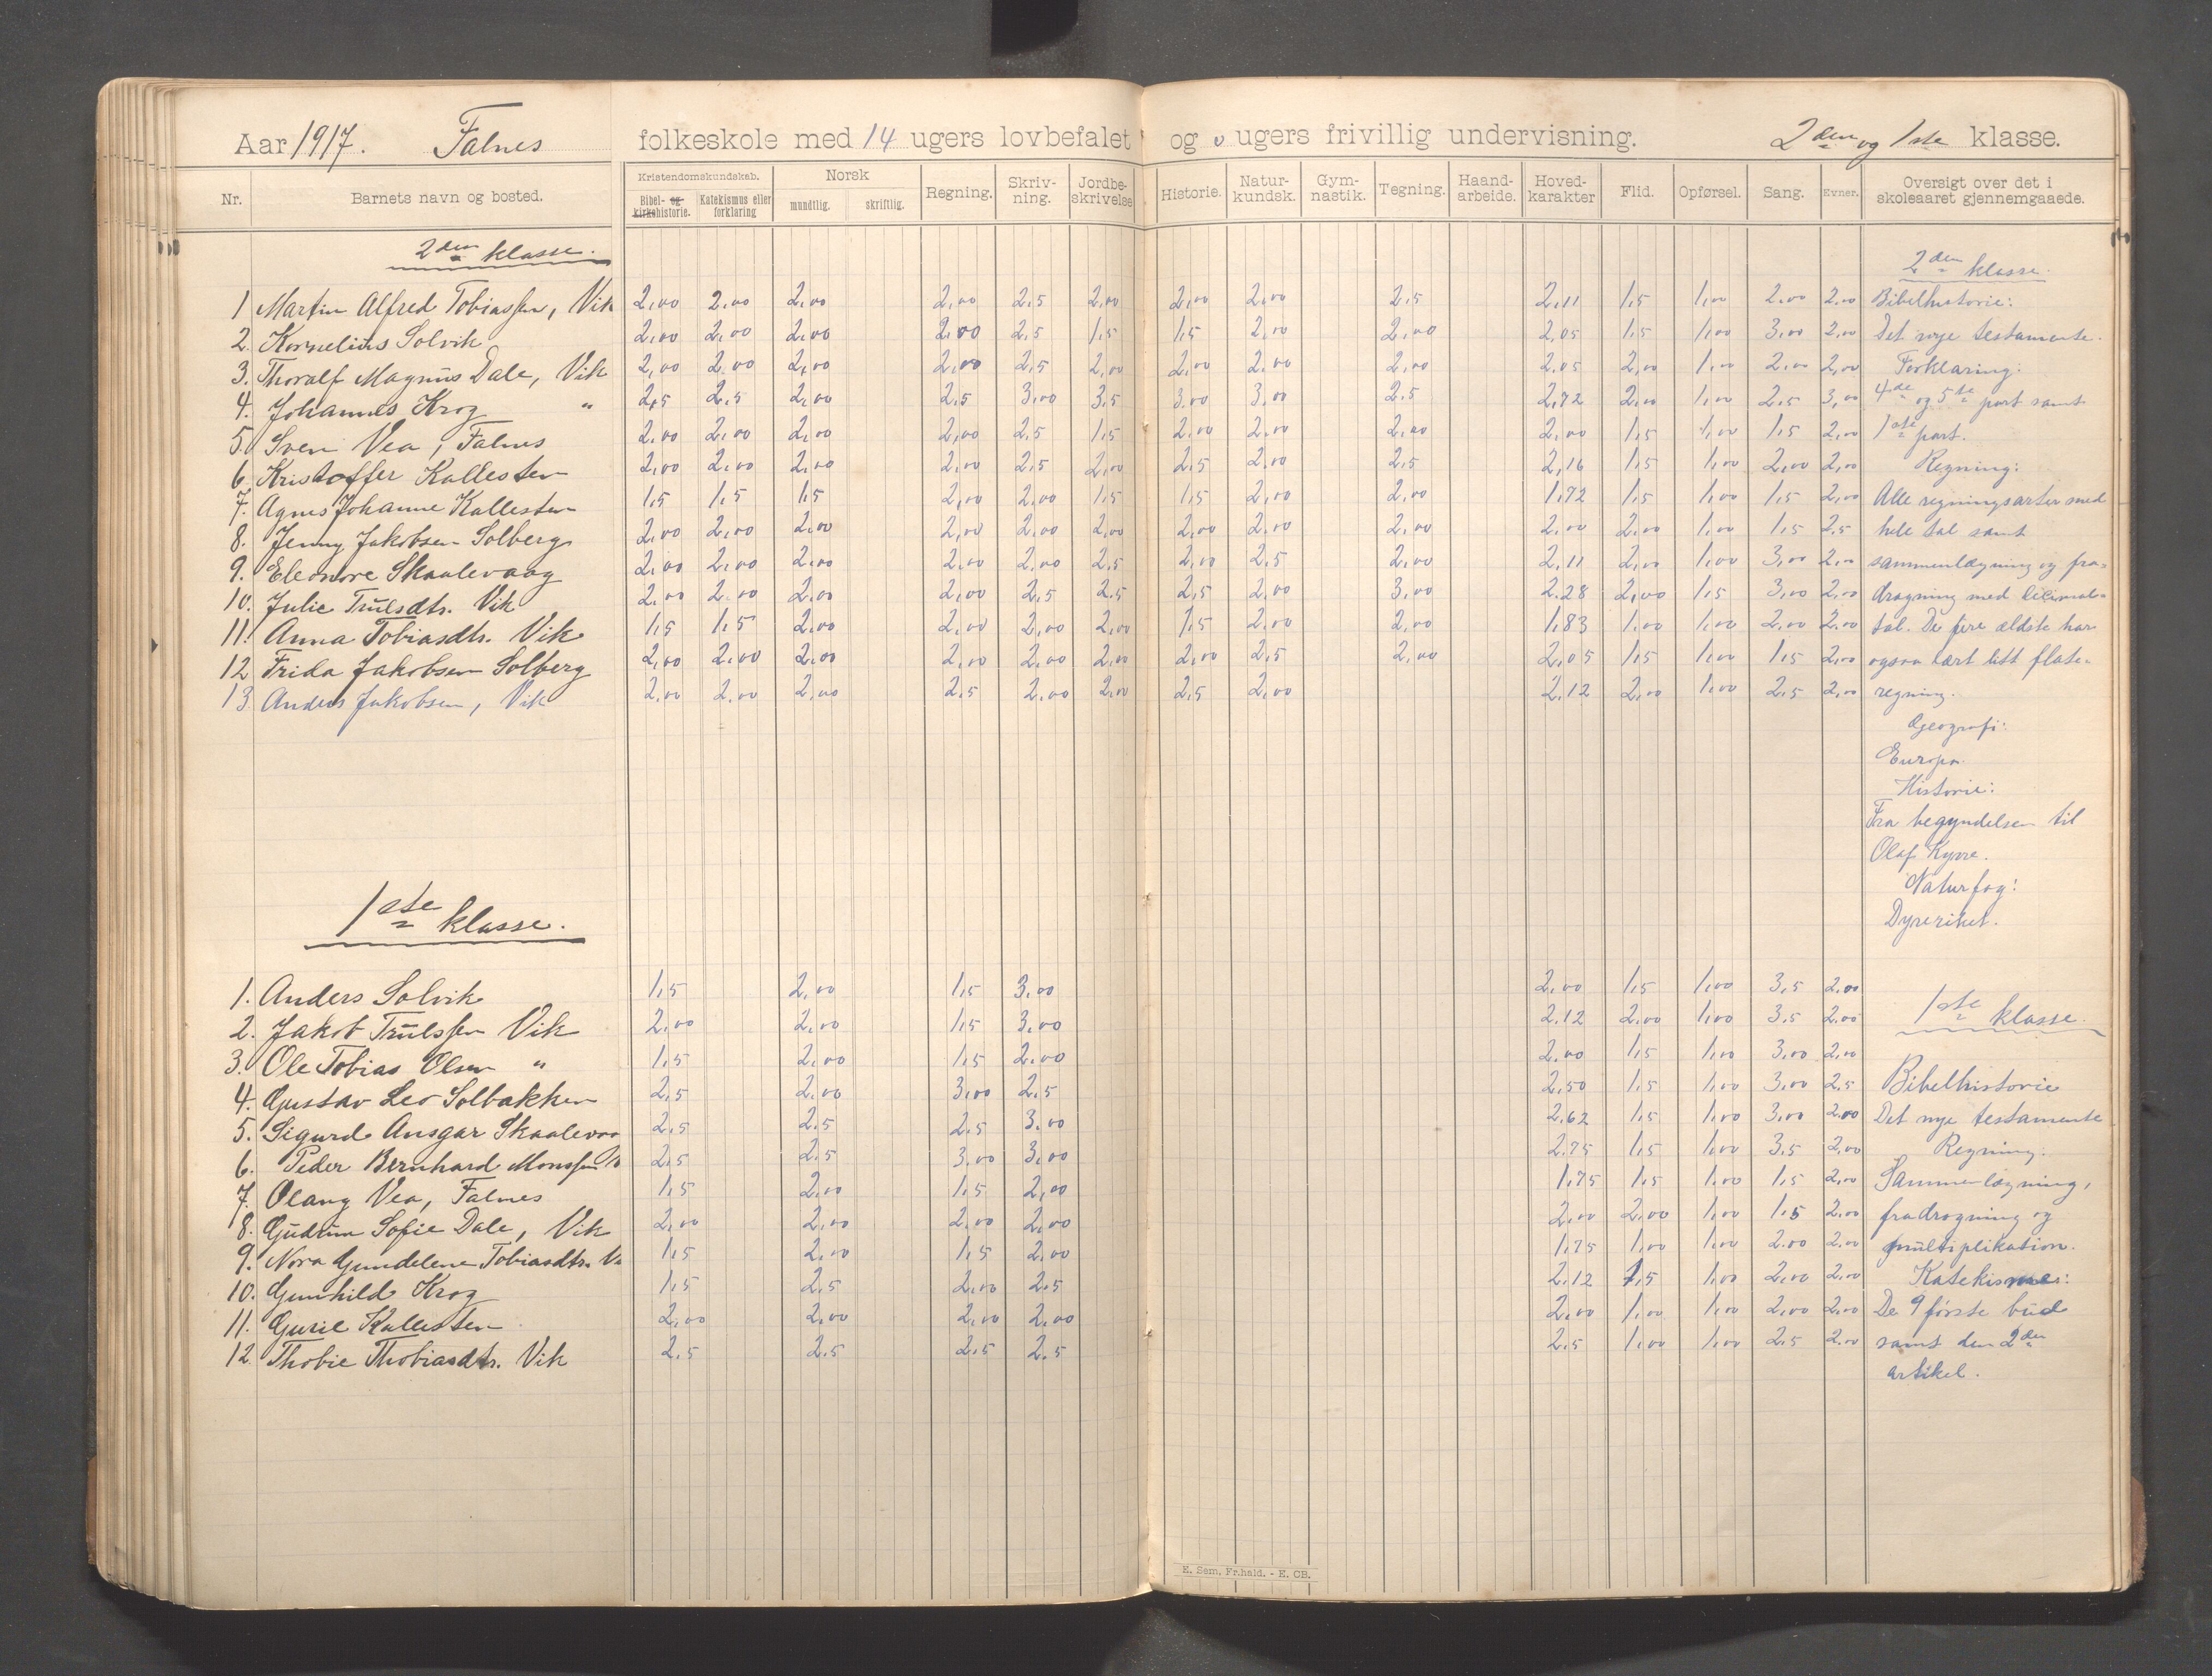 Aar 1917. Falnes folkeskole med 14 ugers lovbefalet og 0 ugers frivillig undervisning. 2den og 1ste klasse.
Nr. Barnets navn og bosted. Kristendomskundskab. Bibel- og kirkehistorie. Katekismus eller forklaring Norsk mundtlig. skriftlig. Regning. Skriv-ning. Jordbe-skrivelse Historie. Natur-kundsk. Gym-nastik. Tegning. Haand-arbeide. Hoved-karakter Flid. Opførsel. Sang. Evner. Oversigt over det i skoleaaret gjennemgaaede.
2den klasse. 2den klasse.
1 Martin Alfred Tobiassen, Vik 2,00 2,00 2,00 2,00 2,5 2,00 2,00 2,00 2,5 2,11 1,5 1,00 2,00 2,00 Bibelhistorie:
2. Kornelius Solvik 2,00 2,00 2,00 2,00 2,5 1,5 1,5 2,00 2,00 2,05 1,5 1,00 3,00 2,00 Det nye testamente.
3. Thoralf Magnus Dale, Vik 2,00 2,00 2,00 2,00 2,5 2,00 2,00 2,00 2,00 2,05 2,00 1,00 2,00 2,00 Forklaring:
4. Johannes Krog " 2,5 2,5 2,00 2,5 3,00 3,5 3,00 3,00 2,5 2,72 2,00 1,00 2,5 3,00 4de og 5te part samt
5. Sven Vea, Falnes 2,00 2,00 2,00 2,00 2,5 1,5 2,00 2,00 2,00 2,00 1,5 1,00 1,5 2,00 1ste part.
6. Kristoffer Kallesten 2,00 2,00 2,00 2,00 2,5 2,00 2,5 2,00 2,5 2,16 1,5 1,00 2,00 2,00 Regning:
7. Agnes Johanne Kallesten 1,5 1,5 1,5 2,00 2,00 1,5 1,5 2,00 2,00 1,72 1,5 1,00 1,5 2,00 Alle regningsarter med
8. Jenny Jakobsen Solberg 2,00 2,00 2,00 2,00 2,00 2,00 2,00 2,00 2,00 2,00 2,00 1,00 1,5 2,5 hele tal samt
9. Eleonore Skaalevaag 2,00 2,00 2,00 2,00 2,00 2,5 2,00 2,5 2,00 2,11 2,00 1,00 3,00 2,00 sammenlægning og fra-
10. Julie Trulsdtr. Vik 2,00 2,00 2,00 2,00 2,5 2,5 2,5 2,00 3,00 2,28 2,00 1,5 3,00 2,00 dragning med decimal-
11. Anna Tobiasdtr. Vik 1,5 1,5 2,00 2,00 2,00 2,00 1,5 2,00 2,00 1,83 1,00 1,00 2,00 2,00 tal. De fire ældste har
12 Frida Jakobsen Solberg 2,00 2,00 2,00 2,00 2,00 2,00 2,00 2,5 2,00 2,05 1,5 1,00 1,5 2,00 ogsaa lært litt flate-
13. Anders Jakobsen, Vik 2,00 2,00 2,00 2,5 2,00 2,00 2,5 2,00 2,12 2,00 1,00 2,5 2,00 regning.
Geografi:
Europa.
Historie:
Fra begyndelsen til
Olaf Kyrre.
Naturfag:
Dyreriket.
1ste klasse.
1. Anders Solvik 1,5 2,00 1,5 3,00 2,00 1,5 1,00 3,5 2,00
2. Jakob Trulssen Vik 2,00 2,00 1,5 3,00 2,12 2,00 1,00 3,5 2,00 1ste klasse.
3. Ole Tobias Olsen " 1,5 2,00 1,5 2,00 2,00 1,5 1,00 3,00 2,00
4. Gustav Leo Solbakken 2,5 2,00 3,00 2,5 2,50 1,5 1,00 3,00 2,5 Bibelhistorie
5. Sigurd Ansgar Skaalevaa 2,5 2,5 2,5 3,00 2,62 1,5 1,00 3,00 2,00 Det nye testamente
6. Peder Bernhard Monssen 2,5 2,5 3,00 3,00 2,75 1,5 1,00 3,5 2,00 Regning.
7. Olang Vea, Falnes 1,5 2,00 1,5 2,00 1,75 1,5 1,00 1,5 2,00 Sammenlægning,
8. Gudrun Sofie Dale, Vik 2,00 2,00 2,00 2,00 2,00 2,00 1,00 1,5 2,00 fradragning og
9. Nora Gundelene Tobiasdtr. V 1,5 2,00 1,5 2,00 1,75 1,00 1,00 2,00 2,00 multiplikation.
10. Gunhild Krog 1,5 2,5 2,00 2,5 2,12 1,5 1,00 2,00 2,00 Katekisme:
11. Guril Kallesten 2,00 2,00 2,00 2,00 2,00 1,00 1,00 2,00 2,00 De 9 første bud
12. Thobie Thobiasdtr. Vik 2,5 2,5 2,5 2,5 2,5 1,00 1,00 2,5 2,00 samt den 2den
artikel.
E. Sem, Fr.hald. - E. CB.